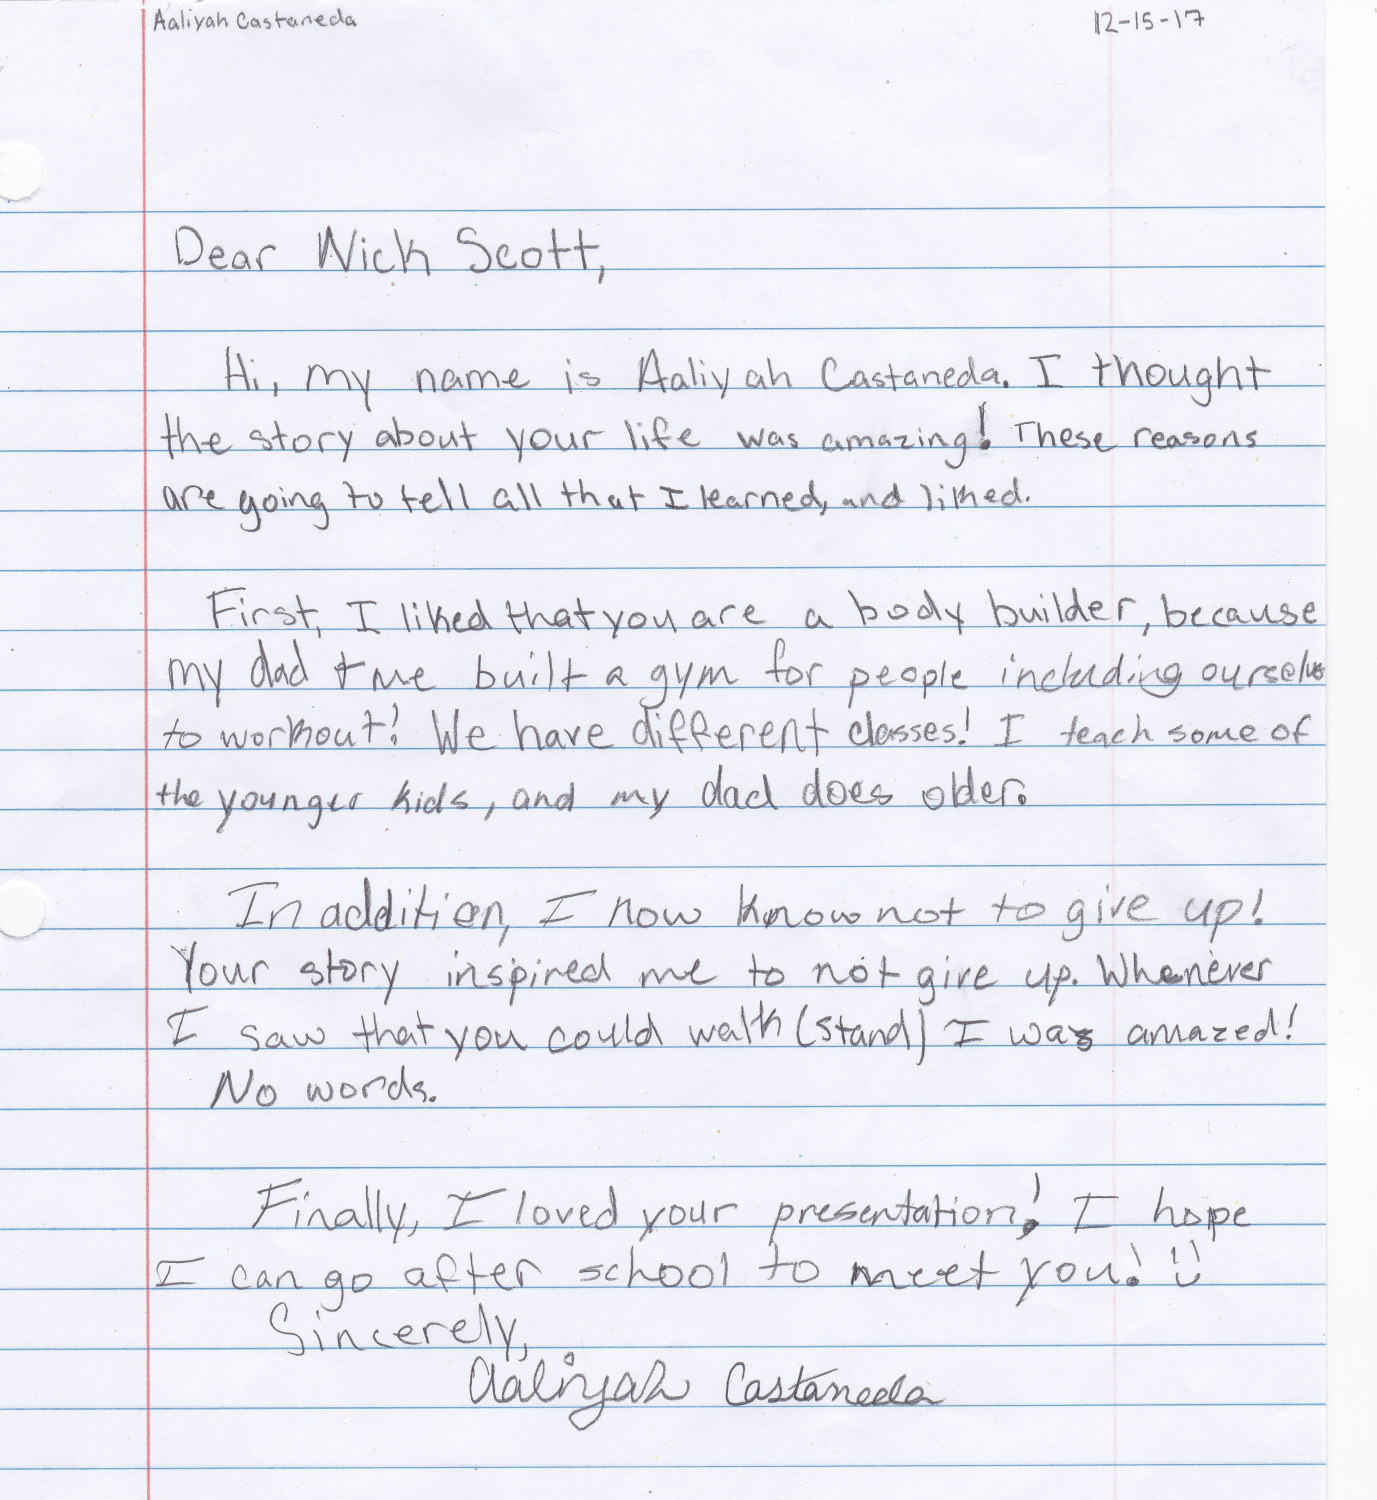 Aaliyah Castaneda 12-15-17
Dear Nick Scott,
Hi, my name is Aaliyah Castaneda. I thought
the story about your life was amazing! These reasons
are going to tell all that I learned, and liked.
First, I liked that you are a body builder, because
my dad + me built a gym for people including ourselves
to workout! We have different classes! I teach some of
the younger kids, and my dad does older.
In addition, I now know not to give up!
Your story inspired me to not give up. Whenever
I saw that you could walk (stand) I was amazed!
No words.
Finally, I loved your presentation! I hope
I can go after school to meet you! :)
Sincerely,
Aaliyah Castaneda